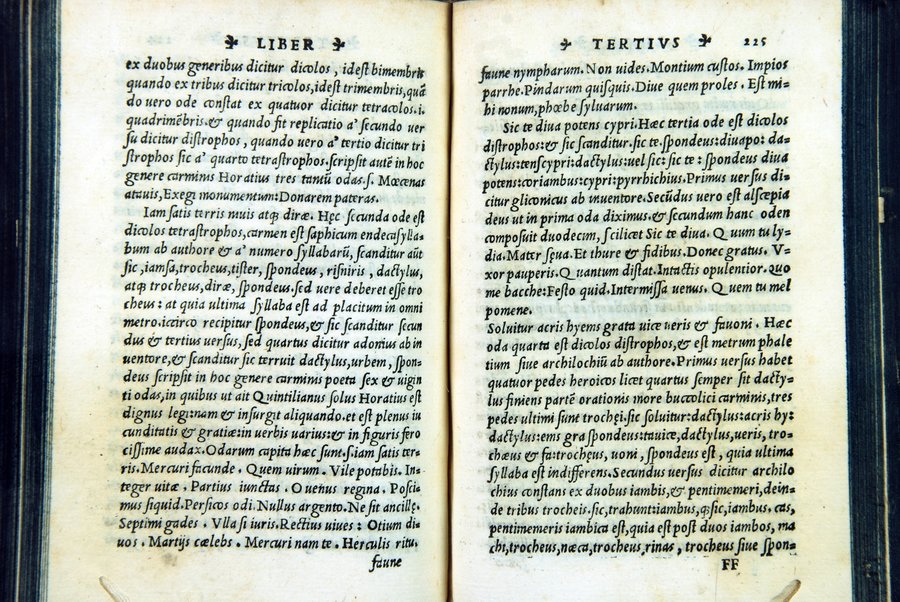 LIBER
ex duobus generibus dicitur dicolos, idest bimembris
quando ex tribus dicitur tricolos, idest trimembris, quã
do uero ode constat ex quatuor dicitur tetracolos.i.
quadrimẽbris.& quando fit replicatio a' secundo uer
su dicitur distrophos, quando uero a' tertio dicitur tri
strophos sic a' quarto tetrastrophos.scripsit autẽ in hoc
genere carminis Horatius tres tantũ odas.s. Mœcenas
atauis, Exegi monumentum: Donarem pateras.
Iam satis terris niuis atq; diræ. Hęc secunda ode est
dicolos tetrastrophos, carmen est saphicum endecasylla-
bum ab authore & a' numero syllabarũ, scanditur aũt
sic, iamsa, trocheus, tister, spondeus, risniris, dactylus,
atq; trocheus, diræ, spondeus. sed uere deberet esse tro
cheus: at quia ultima syllaba est ad placitum in omni
metro. iccirco recipitur spondeus, & sic scanditur secun
dus & tertius uersus, sed quartus dicitur adonius ab in
uentore, & scanditur sic terruit dactylus, urbem, spon-
deus scripsit in hoc genere carminis poeta sex & uigin
ti odas, in quibus ut ait Quintilianus solus Horatius est
dignus legi: nam & insurgit aliquando. et est plenus iu
cunditatis & gratiæ: in uerbis uarius: & in figuris fero
cissime audax. Odarum capita hæc sunt. s. iam satis ter-
ris. Mercuri facunde. Quem uirum. Vile potabis. In-
teger uitæ. Partius iunctas. O uenus regina. Posci-
mus siquid. Persicos odi. Nullus argento. Ne sit ancillę.
Septimi gades. Vlla si iuris. Rectius uiues: Otium di-
uos. Martijs cælebs. Mercuri nam te. Herculis ritu.
faune
TERTIVS 225
faune nympharum. Non uides. Montium custos. Impios
parrhe. Pindarum quisquis. Diue quem proles. Est mi-
hi nonum, phœbe syluarum.
Sic te diua potens cypri. Hæc tertia ode est dicolos
distrophos: & sic scanditur. sic te. spondeus: diuapo: da-
ctylus: tenscypri: dactylus: uel sic: sic te: spondeus diua
potens: coriambus: cypri: pyrrhichius. Primus uersus di-
citur gliconicus ab inuentore. Secũdus uero est alscepia
deus ut in prima oda diximus. & secundum hanc oden
composuit duodecim, scilicet Sic te diua. Quum tu ly-
dia. Mater sęua. Et thure & fidibus. Donec gratus. V-
xor pauperis. Quantum distat. Intactis opulentior. quo
me bacche: Festo quid. Intermissa uenus. Quem tu mel
pomene.
Soluitur acris hyems grata uice ueris & fauoni. Hæc
oda quarta est dicolos distrophos, & est metrum phale
tium siue archilochiũ ab authore. Primus uersus habet
quatuor pedes heroicos licet quartus semper sit dacty-
lus finiens partẽ orationis more buccolici carminis, tres
pedes ultimi sunt trochei. sic soluitur: dactylus: acris hy:
dactylus: ems gra spondeus: tauice, dactylus, ueris, tro-
chæus & fa: trocheus, uoni, spondeus est, quia ultima
syllaba est indifferens. Secundus uersus dicitur archilo
chius constans ex duobus iambis, & pentimemeri, dein-
de tribus trocheis. sic, trabunt: iambus, q; sic, iambus. cas,
pentimemeris iambica est, quia est post duos iambos, ma
chi, trocheus, næca, trocheus rinas, trocheus siue spon-
FF